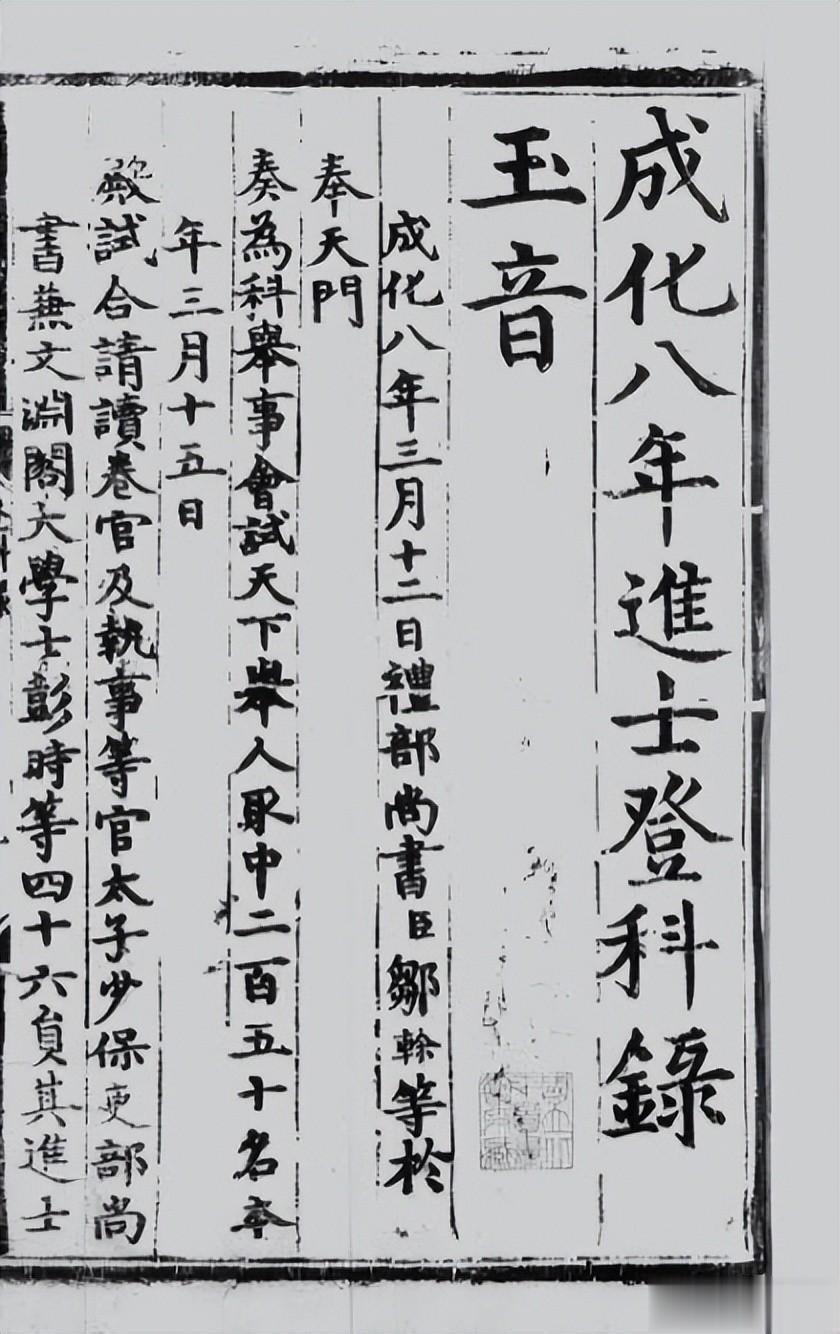 成化八年進士登科錄
玉音
成化八年三月十二日禮部尚書臣鄒榦等於
奉天門
奏為科舉事會試天下舉人取中二百五十名本
年三月十五日
殿試合請讀卷官及執事等官太子少保吏部尚
書蕪文淵閣大學士彭時等四十六員其進士